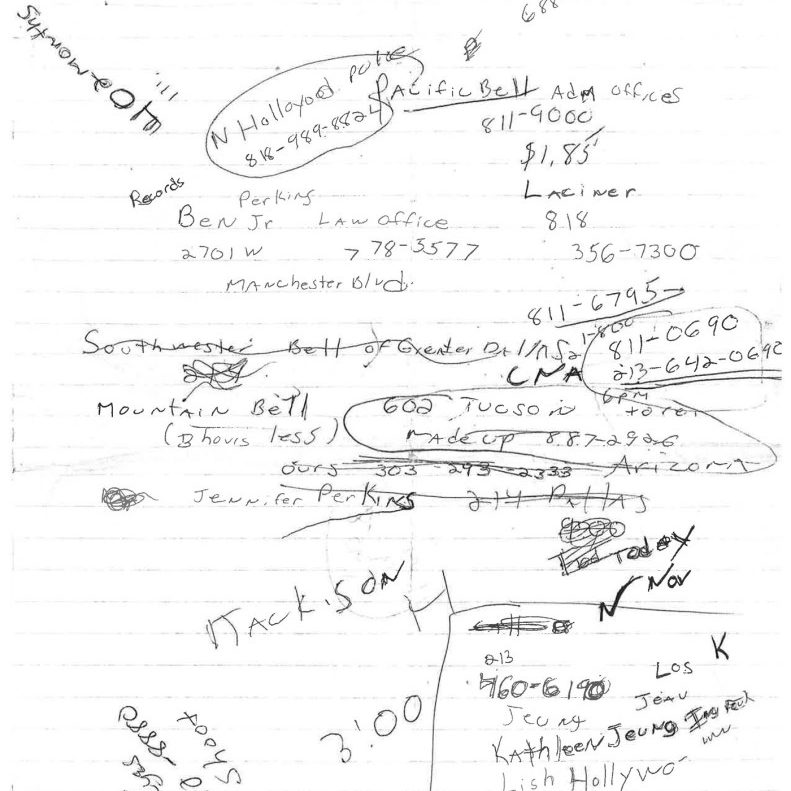 688
40 months
N Hollywood Police
818-989-8824
Pacific Bell Adm offices
811-9000
$1.85
Records
Perkins
Laciner
Ben Jr Law office
818
2701 W
778-3577
356-7300
Manchester Blvd.
811-6795
1-800
811-0690
Southwester Bell of Greater Dallas
213-642-0690
CNA
6 pm
Mountain Bell
602 Tucson
(B hours less)
made up 887-2926
ours 303-293-2333 Arizona
Jennifer Perkins 214 Dallas
Today
Nov
Mackison
N
213
760-6190
Los K
Jeung
Kathleen Jeung
3:00
Shoot
Lish Hollywo